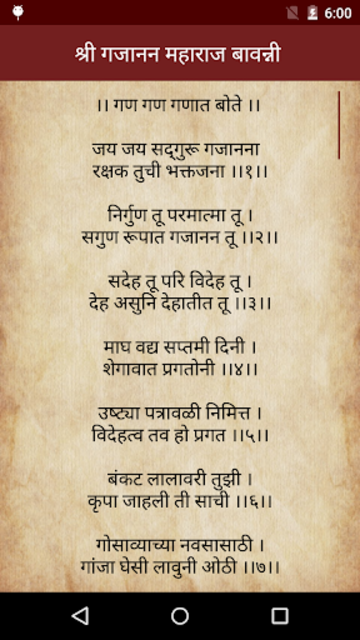 6:00
श्री गजानन महाराज बावन्नी
।। गण गण गणात बोते ।।
जय जय सद्‌गुरू गजानना
रक्षक तुची भक्तजना ।।१।।
निर्गुण तू परमात्मा तू ।
सगुण रूपात गजानन तू ।।२।।
सदेह तू परि विदेह तू ।
देह असुनि देहातीत तू ।।३।।
माघ वद्य सप्तमी दिनी ।
शेगावात प्रगतोनी ।।४।।
उष्ट्या पत्रावळी निमित्त ।
विदेहत्व तव हो प्रगत ।।५।।
बंकट लालावरी तुझी ।
कृपा जाहली ती साची ।।६।।
गोसाव्याच्या नवसासाठी ।
गांजा घेसी लावुनी ओठी ।।७।।